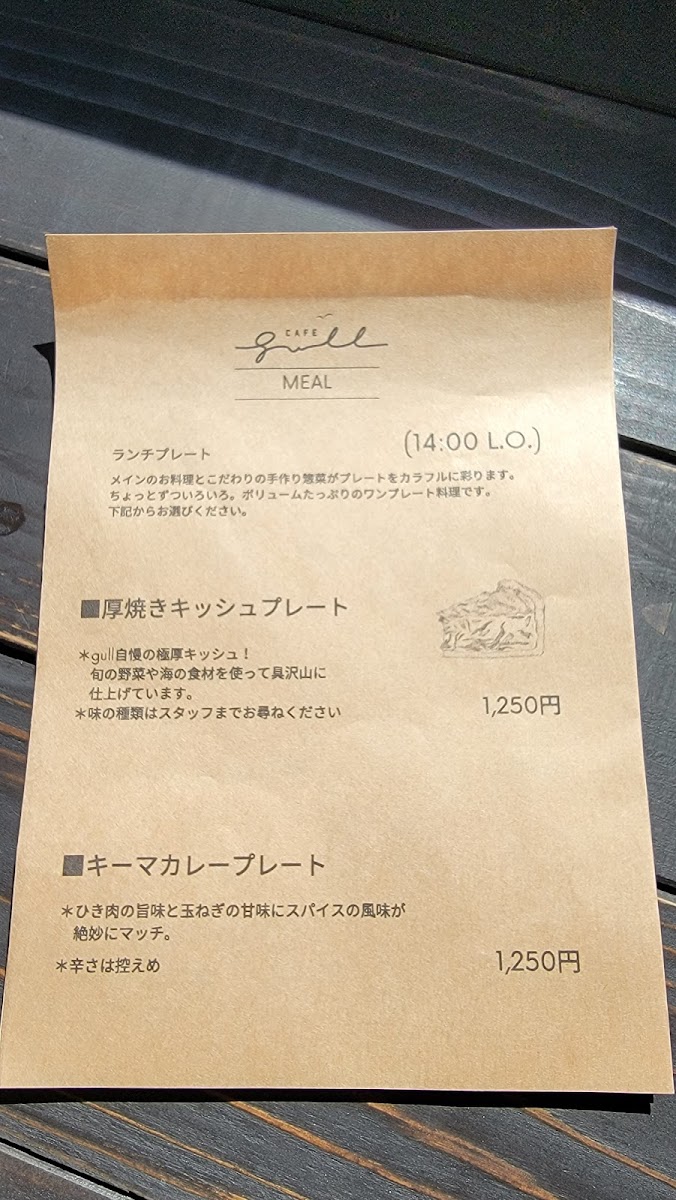 CAFE
gull
MEAL
ランチプレート
(14:00 L.O.)
メインのお料理とこだわりの手作り惣菜がプレートをカラフルに彩ります。
ちょっとずついろいろ。ボリュームたっぷりのワンプレート料理です。
下記からお選びください。
■厚焼きキッシュプレート
＊gull自慢の極厚キッシュ！
旬の野菜や海の食材を使って具沢山に
仕上げています。
＊味の種類はスタッフまでお尋ねください
1,250円
■キーマカレープレート
＊ひき肉の旨味と玉ねぎの甘味にスパイスの風味が
絶妙にマッチ。
＊辛さは控えめ
1,250円